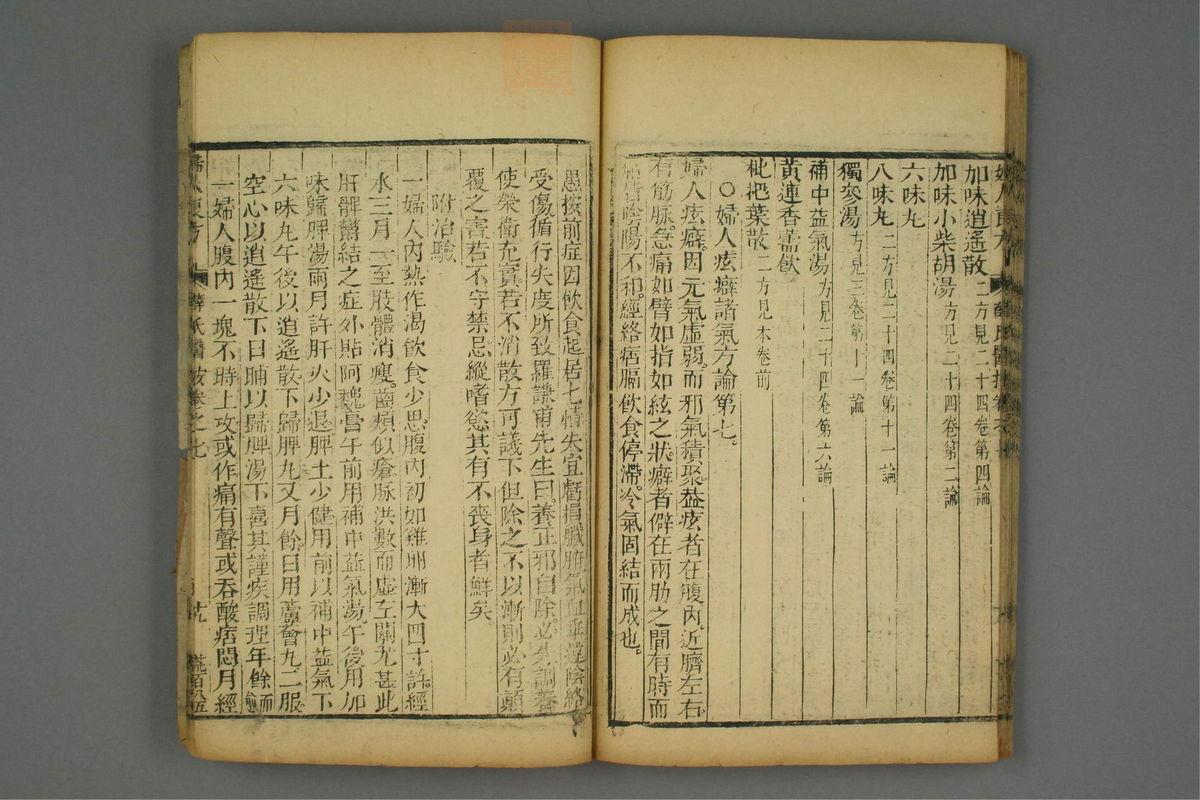 加味逍遙散二方見二十四卷第四論
加味小柴胡湯方見二十四卷第二論
六味丸
八味丸二方見二十四卷第十一論
獨參湯方見三卷第十一論
補中益氣湯方見二十四卷第六論
黃連香薷飲
枇杷葉散二方見本卷前
○婦人痃癖諸氣方論第七
婦人痃癖因元氣虛弱而邪氣積聚葢痃者在腹內近臍左右
有筋脉急痛如臂如指如絃之狀癖者僻在兩肋之間有時而
痛皆陰陽不和經絡痞膈飲食停滯冷氣固結而成也
愚按前症因飲食起居七情失宜虧損臟腑氣血乖違陰絡
受傷循行失度所致羅謙甫先生曰養正邪自除必先調養
使榮衛充實若不消散方可議下但除之不以漸則必有顚
覆之害若不守禁忌縱嗜慾其有不喪身者鮮矣
附治驗
一婦人內熱作渴飲食少思腹內初如雞卵漸大四寸許經
水三月一至肢體消瘦齒頰似瘡脉洪數而虛左關尤甚此
肝脾鬱結之症外貼阿魏膏午前用補中益氣湯午後用加
味歸脾湯兩月許肝火少退脾土少健用前以補中益氣下
六味丸午後以逍遙散下歸脾丸又月餘日用蘆薈丸二服
空心以逍遙散下日晡以歸脾湯下喜其謹疾調理年餘而愈
一婦人腹內一塊不時上攻或作痛有聲或吞酸痞悶月經
婦人良方 薛氏醫按卷之七